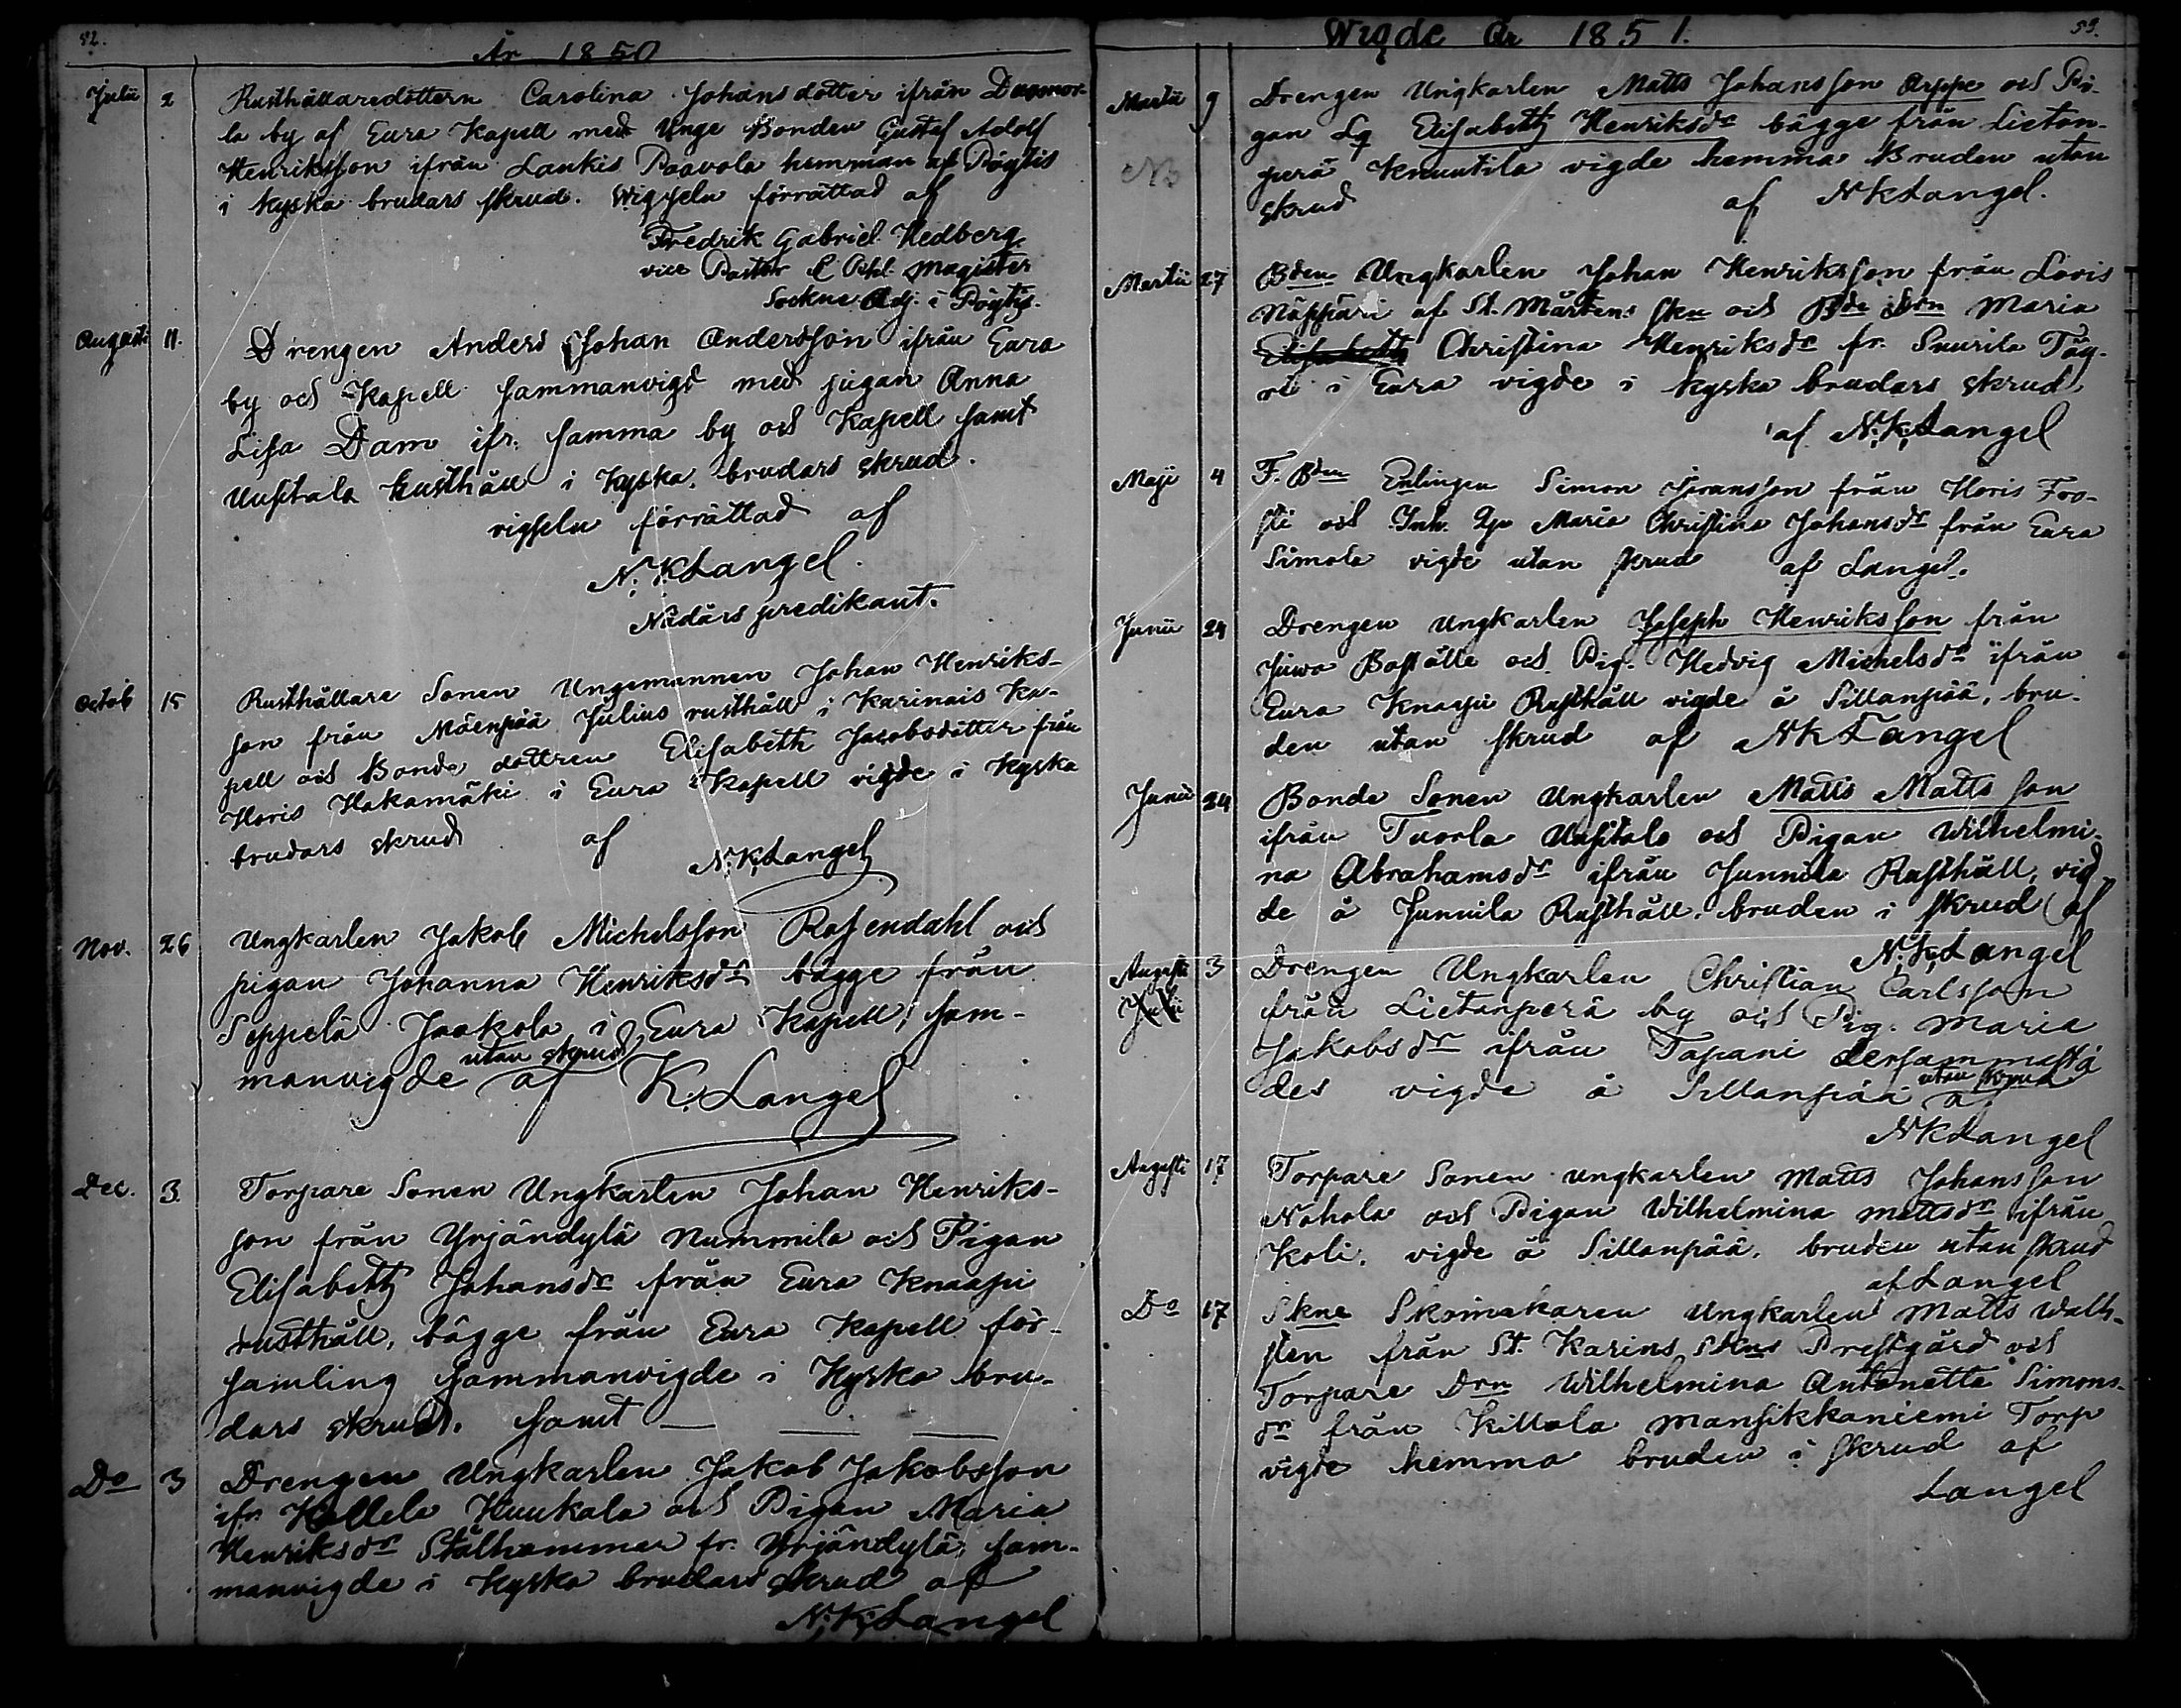 52.
År 1850
Julii 2 Rusthållaredottern Carolina Johansdotter ifrån Dagmar-
la by af Eura Kapell med Unge Bonden Gustaf Adolf
Henriksson ifrån Laukis Paavola hemman af Pöytis
i kyska brudars skrud. Wigseln förrättad af
Fredrik Gabriel Hedberg
vice Pastor Magister
Sockne Adj. i Pöytis.
Augusti 11. Drengen Anders Johan Andersson ifrån Eura
by och Kapell sammanvigd med pigan Anna
Lisa Dam ifr. samma by och Kapell samt
Uusitalo Rusthåll i Kyska brudars skrud.
vigseln förrättad af
N. K. Langel.
Nådårs predikant.
Octob 15 Rusthållare Sonen Ungemannen Johan Henriks-
son från Mäenpää Julius rusthåll i Karinais Ka-
pell och Bonde dottren Elisabeth Jacobsdotter från
Horis Hakamäki i Eura Kapell vigde i Kyska
brudars skrud af
N. K. Langel
Nov. 26 Ungkarlen Jakob Michelsson Rosendahl och
pigan Johanna Henriksdr bägge från
Seppelä Jaakola i Eura Kapell, sam-
manvigde utan skrud af K. Langel
Dec. 3. Torpare Sonen Ungkarlen Johan Henriks-
son från Yrjändylä Nummila och Pigan
Elisabeth Johansdr från Eura Knaapi
rusthåll, bägge från Eura Kapell för-
samling sammanvigde i Kyska bru-
dars skrud. samt — — —
Do 3 Drengen Ungkarlen Jakob Jakobsson
ifr. Kallela Kuukala och Pigan Maria
Henriksdr Stålhammer fr. Yrjändylä, sam-
manvigde i Kyska brudars skrud af
N. K. Langel
Wigde År 1851.
53.
Martii 9 Drengen Ungkarlen Matts Johansson Arppe och Pi-
gan Elisabeth Henriksdr bägge från Lietan-
NB perä Knuutila vigde hemma Bruden utan
skrud af N K Langel.
Martii 27 Bden Ungkarlen Johan Henriksson från Lovis
Näppäri af St. Mårtens skn och Bde Drn Maria
Elisabeth Christina Henriksdr fr. Snurila Täy-
ri i Eura vigde i kyska brudars skrud
af N. K. Langel
Maji 4 F. Bden Enlingen Simon Jöransson från Horis Foo-
sti och Inh. Maria Christina Johansdr från Eura
Simola vigde utan skrud af Langel.
Junii 24 Drengen Ungkarlen Joseph Henriksson från
Juwa Boställe och Pig. Hedvig Michelsdr ifrån
Eura Knaapi Rusthåll vigde å Sillanpää, bru-
den utan skrud af N K Langel
Junii 24 Bonde Sonen Ungkarlen Matts Mattsson
ifrån Tuorla Uusitalo och Pigan Wilhelmi-
na Abrahamsdr ifrån Junnila Rusthåll, vig-
de å Junnila Rusthåll, bruden i skrud af
N. K. Langel
Augusti 3 Drengen Ungkarlen Christian Carlsson
Julii från Lietanperä by och Pig. Maria
Jakobsdr ifrån Tapani dersammastä
des vigde å Sillanpää utan skrud af
N K Langel
Augusti 17 Torpare Sonen ungkarlen Matts Johansson
Nahala och Pigan Wilhelmina Mattsdr ifrån
Koli, vigde å Sillanpää, bruden utan skrud
af Langel
Do 17 Skne Skomakaren Ungkarlen Matts Wall-
sten från St. Karins Skns Prestgård och
Torpare Drn Wilhelmina Antonette Simons-
dr från Killala Mansikkaniemi Torp
vigde hemma bruden i skrud af
Langel